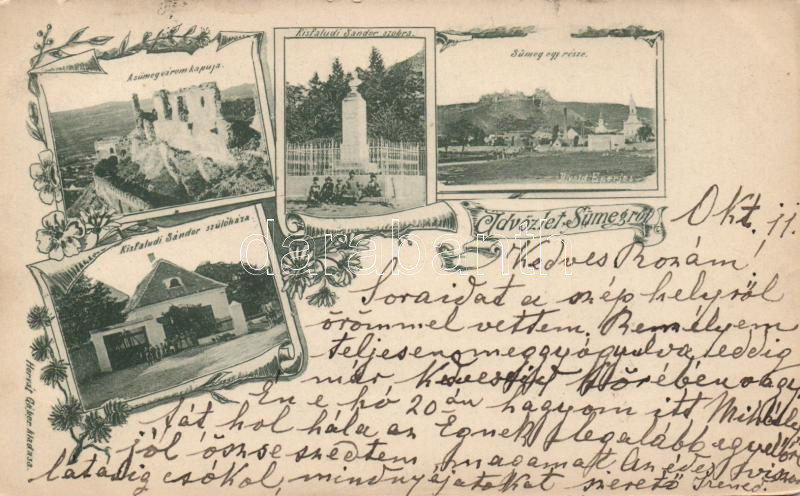 A sümegi várrom kapuja.
Kisfaludi Sándor szobra.
Sümeg egy része.
Divald Eperjes
Üdvözlet Sümegről
Kisfaludi Sándor szülőháza.
Horvát Gábor kiadása.
darabanth
Okt. 11.
Kedves Rozám,
Soraidat a szép helyről
örömmel vettem. Remélyem
teljesen meggyógyulva eddig
már körében vagy
Én e hó 20án hagyom itt
fát hol hála az Égnek legalább
jól össze szedtem magamat. Az édes viszont
látásig csókol, mindnyájatokat szerető Irened.